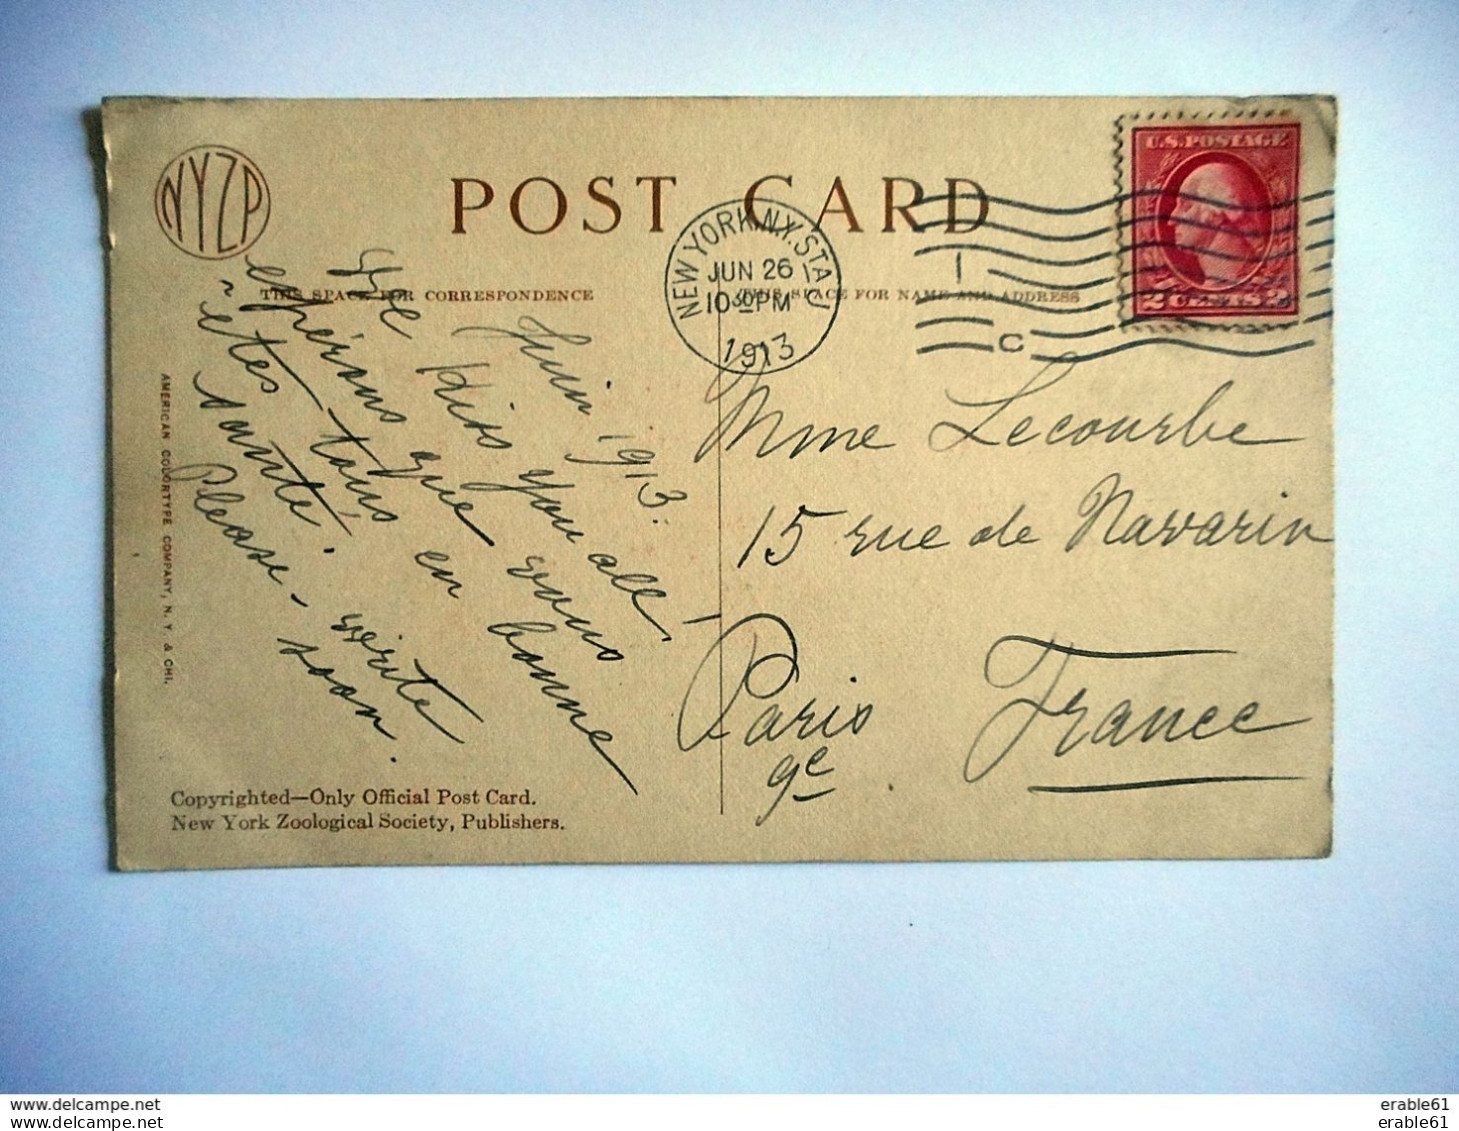 NYZP
POST CARD
THIS SPACE FOR CORRESPONDENCE
THIS SPACE FOR NAME AND ADDRESS
NEW YORK, N.Y. STA. J
JUN 26
10 30 PM
1913
1
C
U.S. POSTAGE
2 CENTS 2
Juin 1913.
We Kiss you all,
espérons que vous
êtes tous en bonne
santé.
Please write
soon.
Mme Lecourbe
15 rue de Navarin
Paris
9e
France
AMERICAN COLORTYPE COMPANY, N. Y. & CHI.
Copyrighted—Only Official Post Card.
New York Zoological Society, Publishers.
www.delcampe.net
www.delcampe.net
erable61
erable61